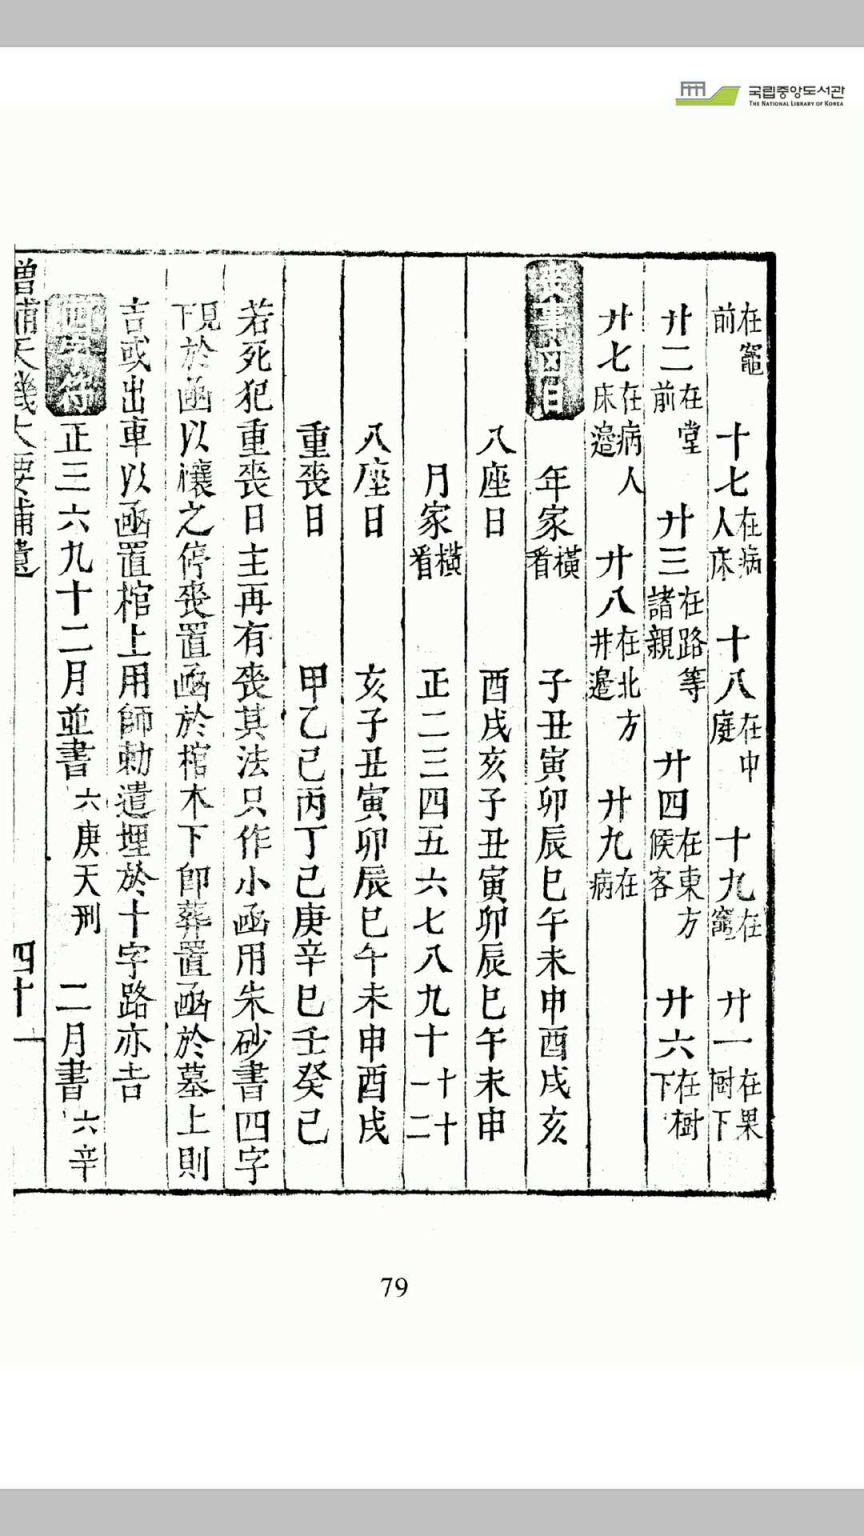 국립중앙도서관
THE NATIONAL LIBRARY OF KOREA
在竈前 十七在病人床 十八在中庭 十九在竈 廿一在果樹下
廿二在堂前 廿三在路等諸親 廿四在東方候客 廿六在樹下
廿七在病人床邉 廿八在北方井邉 廿九在病
喪事凶日 年家橫看 子丑寅卯辰巳午未申酉戌亥
八座日 酉戌亥子丑寅卯辰巳午未申
月家橫看 正二三四五六七八九十十一十二
八座日 亥子丑寅卯辰巳午未申酉戌
重喪日 甲乙己丙丁己庚辛巳壬癸己
若死犯重喪日主再有喪其法只作小凾用朱砂書四字
現下於凾以禳之停喪置凾於棺木下卽葬置凾於墓上則
吉或出車以凾置棺上用師勅遣埋於十字路亦吉
四字符 正三六九十二月並書 六庚天刑 二月書 六辛
增補天機大要補遺 四十一
79